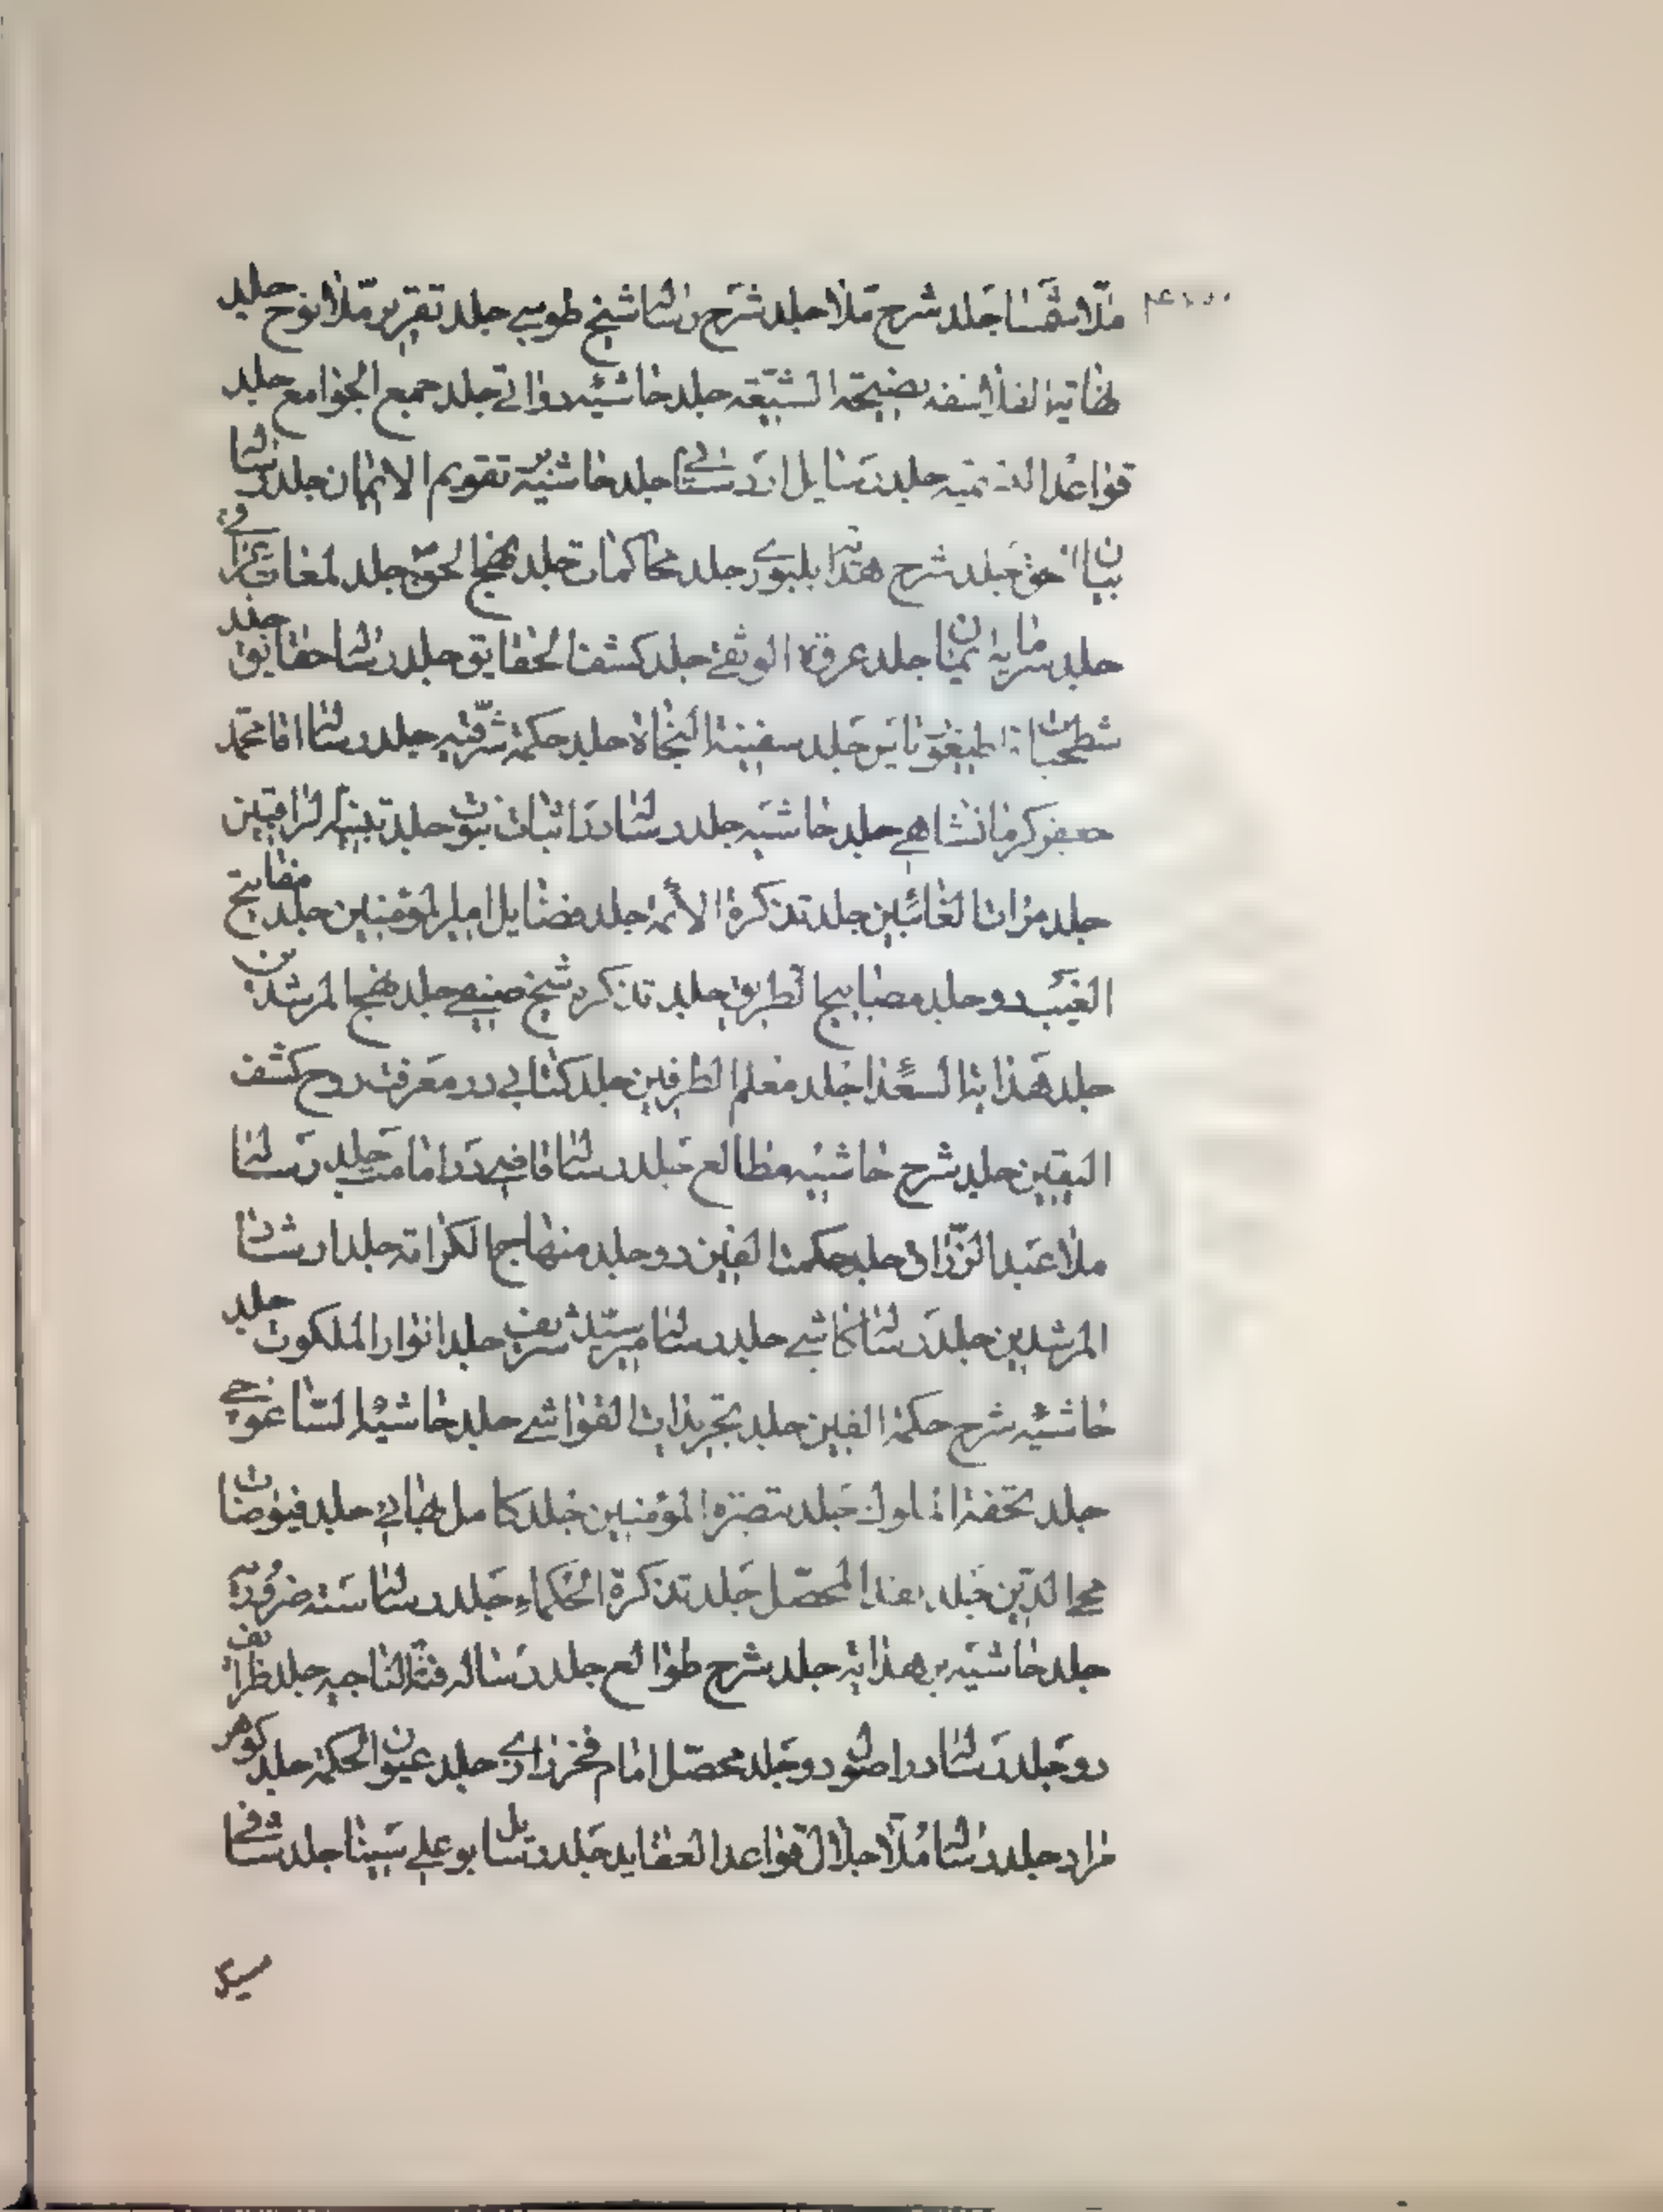 ملا شمسا جلد شرح ملا جلد شرح رسالة شیخ طوسی جلد تقریر ملا نوح جلد
تهافة الفلاسفه نصیحة الشیعة جلد حاشیه دوانی جلد جمع الجوامع جلد
قواعد جلد رسایل اردستانی جلد حاشیه تقویم الایمان جلد رسالة
بیان الحق جلد شرح هدایه جلد محاکمات جلد نهج الحق جلد
جلد سرمایه ایمان جلد عروة الوثقی جلد کشف الحقایق جلد رسالة حقایق جلد
شطحیات جلد سفینة النجاة جلد حکمة جلد رسالة اقا محمد
جعفر کرمانشاهی جلد حاشیه جلد رسالة در اثبات نبوت جلد تنبیه الراقدین
جلد مرات جلد تذکرة الائمة جلد فضایل امیر المؤمنین جلد مفاتیح
الغیب دو جلد مصابیح الطریق جلد تذکره شیخ صفی جلد نهج المرشدین
جلد هدایة السعدا جلد معلم الطرفین جلد کتابی در معرفت روح کشف
الیقین جلد شرح حاشیه مطالع جلد رسالة فافی در امامت جلد رسالة
ملا عبد الرزاق جلد حکمت العین دو جلد منهاج الکرامة جلد ارشاد
المرشدین جلد رسالة کاشی جلد رسالة میر سید شریف جلد انوار الملکوت جلد
حاشیه شرح حکمة العین جلد تجرید ات الغواشی جلد حاشیه ایساغوجی
جلد تحفة الملوک جلد تبصرة المؤمنین جلد کامل بهائی جلد فیوضات
محی الدین جلد نقد المحصل جلد تذکرة الحکماء جلد رسالة سته ضروریه
جلد حاشیه بر هدایه جلد شرح طوالع جلد رساله فئة الناجیه جلد ظرائف
دو جلد رسالة در اصول دو جلد محصل امام فخر رازی جلد عیون الحکمة جلد گوهر
مراد جلد رسالة ملا جلال قواعد العقاید جلد رسایل بو علی سینا جلد شافی